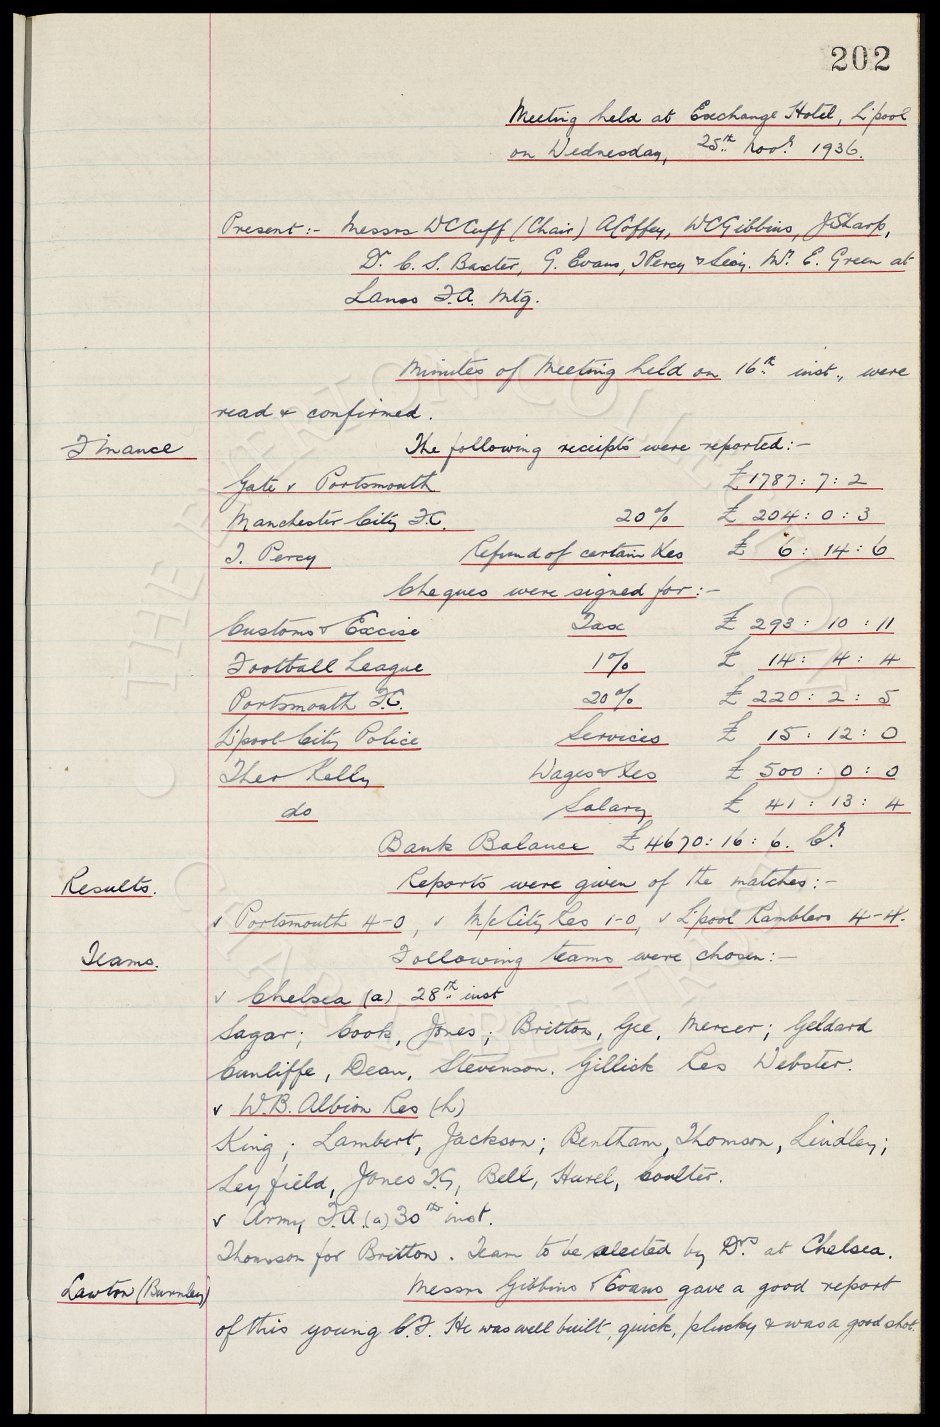 202
Meeting held at Exchange Hotel, L'pool
on Wednesday, 25th Novr. 1936.
Present:- Messrs W C Cuff (Chair) A Coffey, W C Gibbins, J Sharp,
Dr. C. S. Baxter, G. Evans, T Percy & Secy. Mr. E. Green at
Lancs F.A. Mtg.
Minutes of Meeting held on 16th inst., were
read & confirmed.
Finance The following receipts were reported:-
Gate v Portsmouth £1787:7:2
Manchester City F.C. 20% £ 204:0:3
T. Percy Refund of certain Xes £ 6:14:6
Cheques were signed for:-
Customs & Excise Tax £ 293:10:11
Football League 1% £ 14:4:4
Portsmouth F.C. 20% £ 220:2:5
L'pool City Police Services £ 15:12:0
Theo Kelly Wages & Xes £ 500:0:0
do Salary £ 41:13:4
Bank Balance £4670:16:6. Cr.
Results. Reports were given of the matches:-
v Portsmouth 4-0, v M/c City Res 1-0, v L'pool Ramblers 4-4.
Teams. Following teams were chosen:-
v Chelsea (a) 28th inst
Sagar; Cook, Jones; Britton, Gee, Mercer; Geldard
Cunliffe, Dean, Stevenson, Gillick Res Webster.
v W.B. Albion Res (h)
King; Lambert, Jackson; Bentham, Thomson, Lindley;
Leyfield, Jones T.G, Bell, Hurel, Coulter.
v Army F.A. (a) 30th inst.
Thomson for Britton. Team to be selected by Drs at Chelsea.
Lawton (Burnley) Messrs Gibbins & Evans gave a good report
of this young C.F. He was well built, quick, plucky & was a good shot.
© THE EVERTON COLLECTION